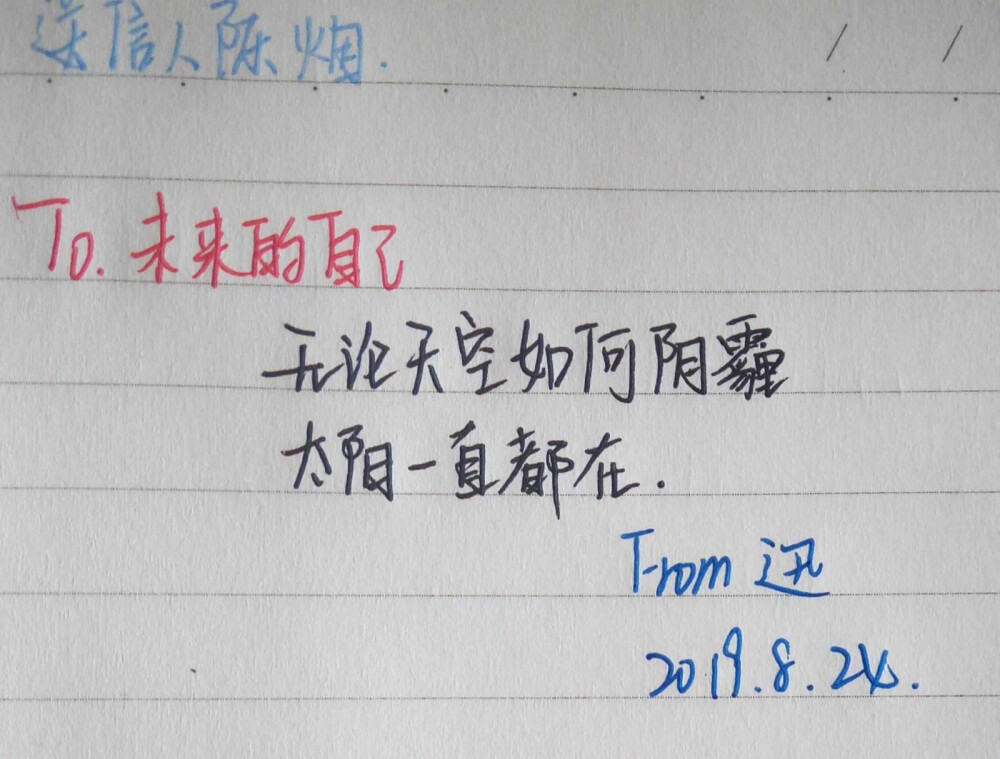 送信人陈烟.
/ /
To. 未来的自己
无论天空如何阴霾
太阳一直都在.
From 迅
2019.8.24.